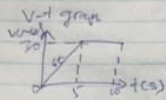 V-t graph
V(m/s)
30
45
0 5 10 t(s)